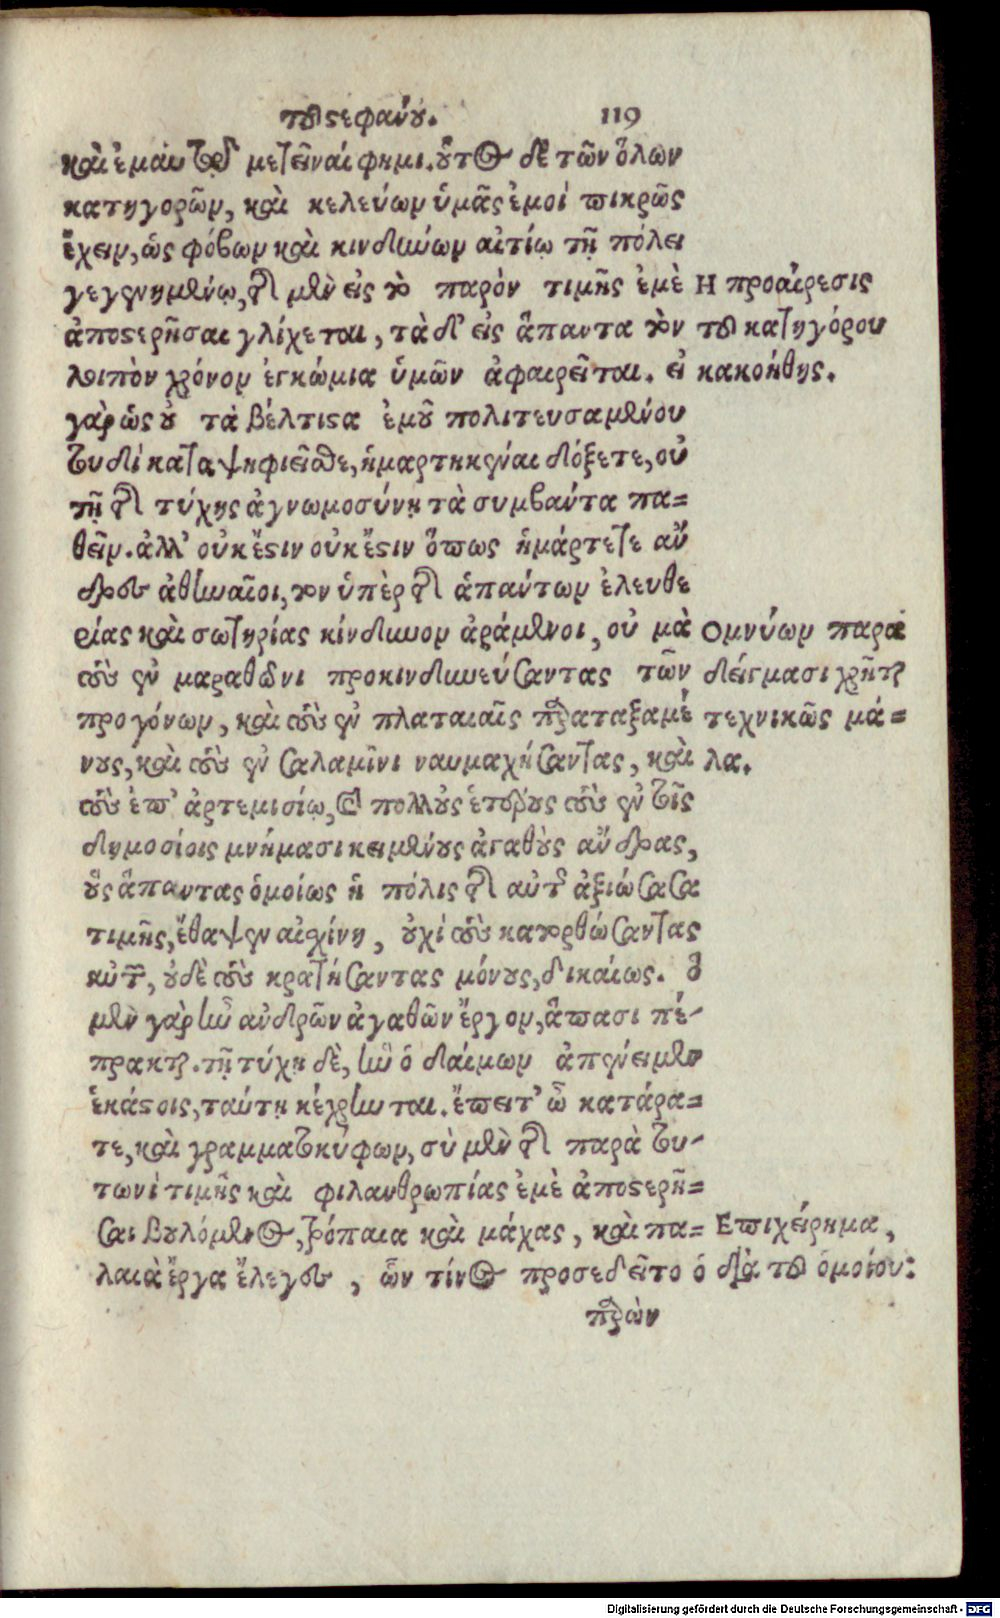 τοῦ στεφάνου. 119
καὶ ἐμαυτῷ μετεῖναί φημι. οὗτος δὲ τῶν ὅλων
κατηγορῶν, καὶ κελεύων ὑμᾶς ἐμοὶ πικρῶς
ἔχειν, ὡς φόβων καὶ κινδύνων αἰτίῳ τῇ πόλει
γεγενημένῳ, τῆς μὲν εἰς τὸ παρὸν τιμῆς ἐμὲ
ἀποστερῆσαι γλίχεται, τὰ δ' εἰς ἅπαντα τὸν
λοιπὸν χρόνον ἐγκώμια ὑμῶν ἀφαιρεῖται. εἰ
γὰρ ὡς οὐ τὰ βέλτιστα ἐμοῦ πολιτευσαμένου
τουδὶ καταψηφιεῖσθε, ἡμαρτηκέναι δόξετε, οὐ
τῇ τῆς τύχης ἀγνωμοσύνῃ τὰ συμβάντα πα=
θεῖν. ἀλλ' οὐκ ἔστιν οὐκ ἔστιν ὅπως ἡμάρτετε ἄν
δρες ἀθηναῖοι, τὸν ὑπὲρ τῆς ἁπάντων ἐλευθε
ρίας καὶ σωτηρίας κίνδυνον ἀράμενοι, οὐ μὰ
τοὺς ἐν μαραθῶνι προκινδυνεύσαντας τῶν
προγόνων, καὶ τοὺς ἐν πλαταιαῖς παραταξαμέ
νους, καὶ τοὺς ἐν σαλαμῖνι ναυμαχήσαντας, καὶ
τοὺς ἐπ' ἀρτεμισίῳ, καὶ πολλοὺς ἑτέρους τοὺς ἐν τοῖς
δημοσίοις μνήμασι κειμένους ἀγαθοὺς ἄνδρας,
οὓς ἅπαντας ὁμοίως ἡ πόλις τῆς αὐτῆς ἀξιώσασα
τιμῆς, ἔθαψεν αἰσχίνη, οὐχὶ τοὺς κατορθώσαντας
αὐτῶν, οὐδὲ τοὺς κρατήσαντας μόνους, δικαίως. ὃ
μὲν γὰρ ἦν ἀνδρῶν ἀγαθῶν ἔργον, ἅπασι πέ-
πρακται. τῇ τύχῃ δὲ, ἣν ὁ δαίμων ἀπένειμεν
ἑκάστοις, ταύτῃ κέχρηνται. ἔπειτ' ὦ κατάρα=
τε, καὶ γραμματοκύφων, σὺ μὲν τῆς παρὰ του-
τωνὶ τιμῆς καὶ φιλανθρωπίας ἐμὲ ἀποστερῆ=
σαι βουλόμενος, τρόπαια καὶ μάχας, καὶ πα=
λαιὰ ἔργα ἔλεγες, ὧν τίνος προσεδεῖτο ὁ
παρὼν
Η προαίρεσις
τοῦ κατηγόρου
κακοήθης.
Ομνύων παρα
δείγμασι χρῆται
τεχνικῶς μά=
λα.
Επιχείρημα,
διὰ τοῦ ὁμοίου:
Digitalisierung gefördert durch die Deutsche Forschungsgemeinschaft - DFG